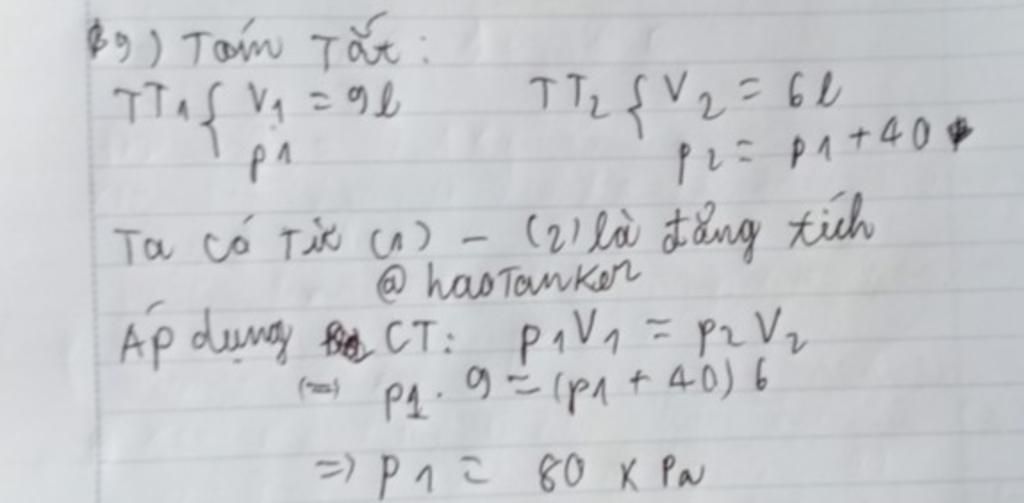 89) Toám Tắt:
TT1 { V1 = 9l TT2 { V2 = 6l
p1 p2 = p1 + 40
Ta có Từ (1) - (2) là đẳng tích
@haoTanker
Áp dụng CT: p1V1 = p2V2
(=) p1. 9 = (p1 + 40) 6
=> p1 = 80 K Pa